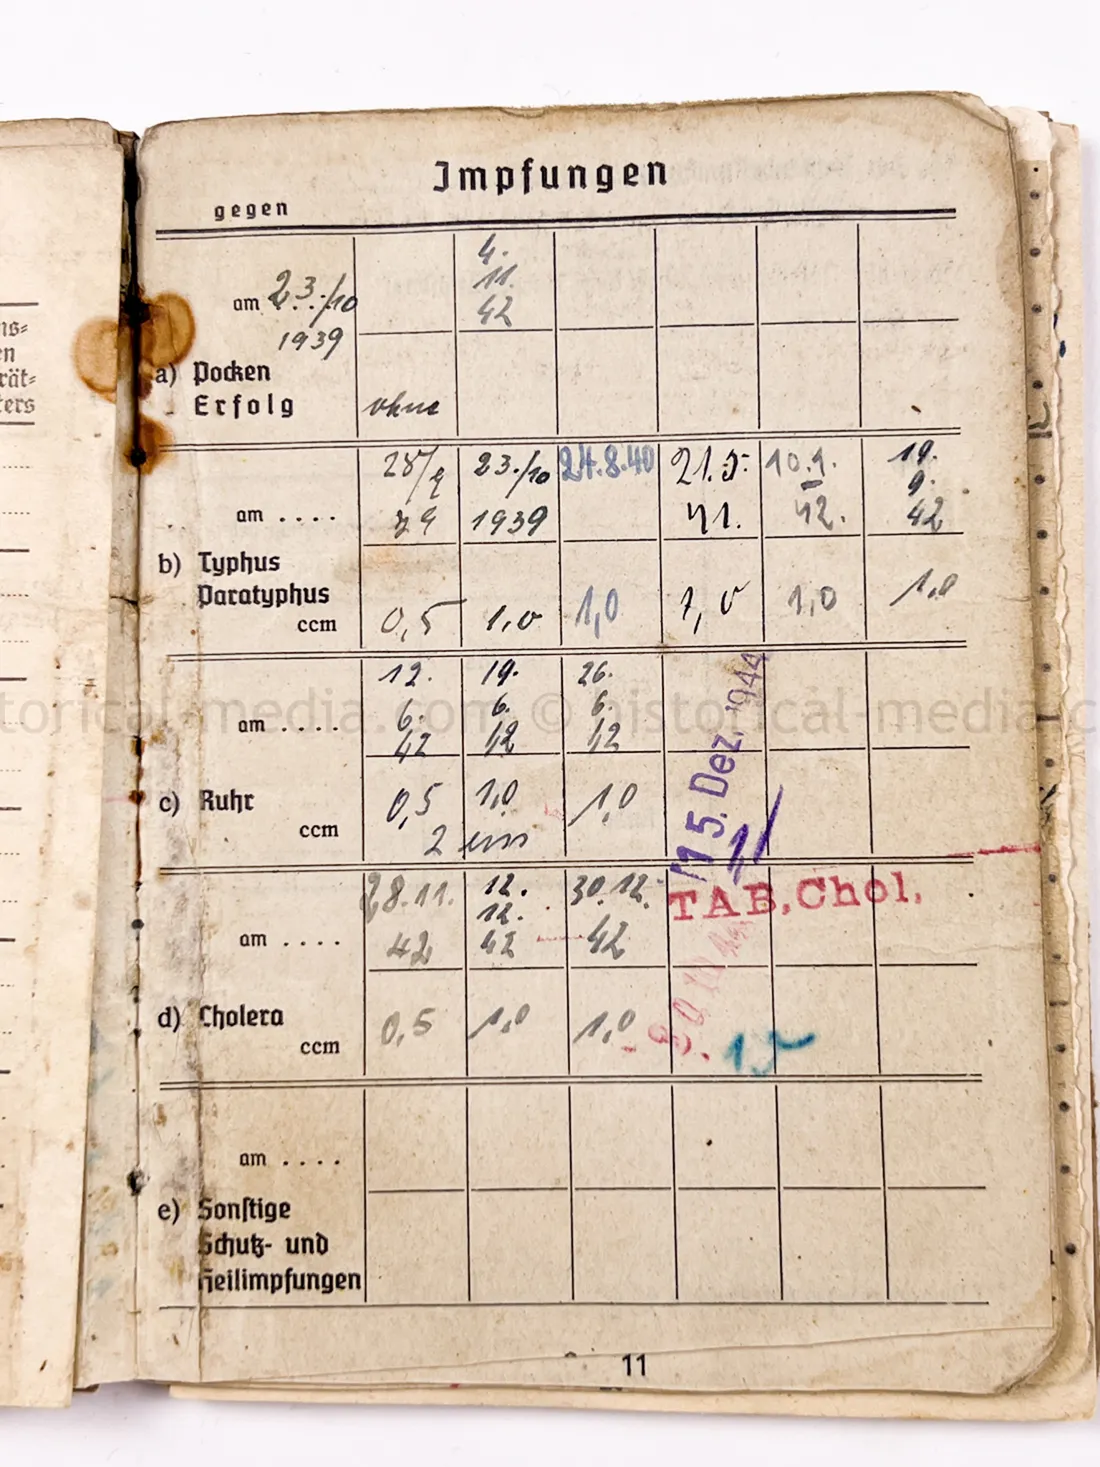 Impfungen
gegen
4.
11.
42
am 23./10
1939
a) Pocken
Erfolg ohne
23./10 24.8.40 21.5. 10.1. 19.
9.
am .... 1939 41. 42. 42
b) Typhus
Paratyphus
ccm 0,5 1,0 1,0 1,0 1,0 1,0
12. 19. 26.
6. 6. 6.
am .... 42 42 42
15. Dez. 1944
c) Ruhr 0,5 1,0 1,0
ccm 2
28.11. 12. 30.12.
12.
TAB, Chol,
am .... 42 42 42
d) Cholera 0,5 1,0 1,0
ccm
am ....
e) Sonstige
Schutz- und
Heilimpfungen
11
ns=
en
rät=
ters
torical-media.com © historical-media.c